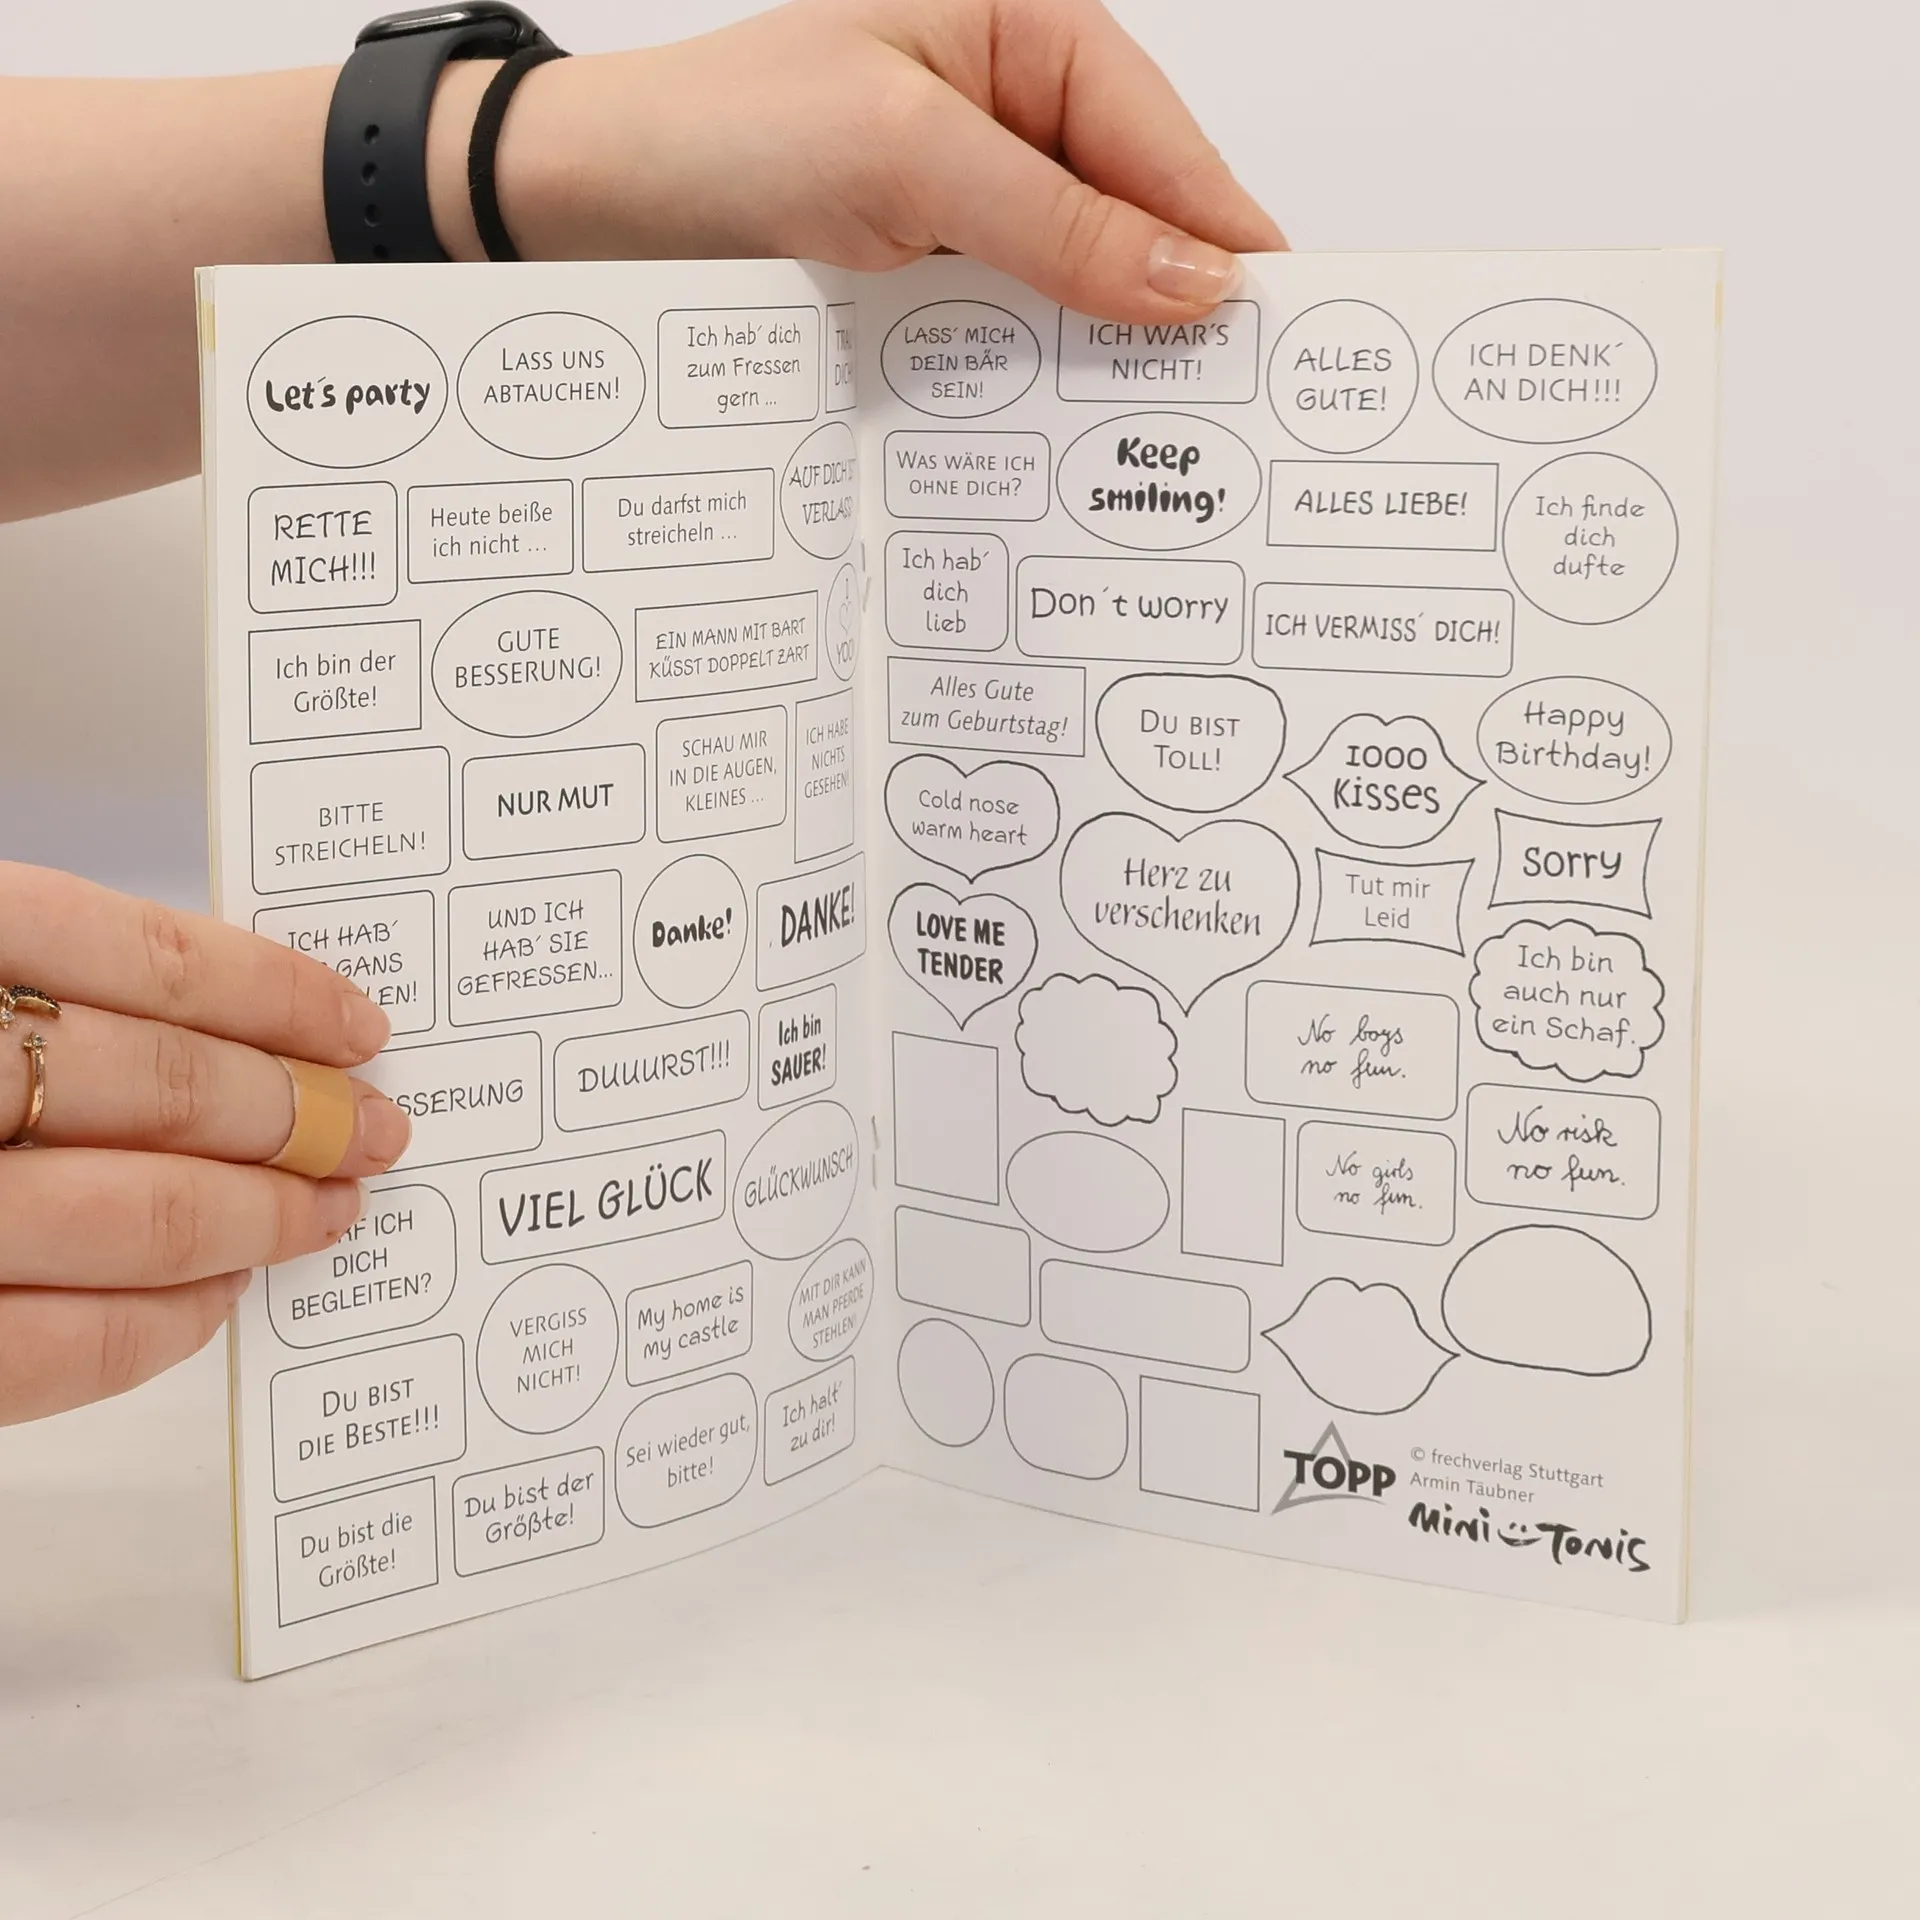 Let´s party
LASS UNS
ABTAUCHEN!
Ich hab´ dich
zum Fressen
gern ...
RETTE
MICH!!!
Heute beiße
ich nicht ...
Du darfst mich
streicheln ...
AUF DICH
VERLASS
I
YOU
Ich bin der
Größte!
GUTE
BESSERUNG!
EIN MANN MIT BART
KÜSST DOPPELT ZART
BITTE
STREICHELN!
NUR MUT
SCHAU MIR
IN DIE AUGEN,
KLEINES ...
ICH HABE
NICHTS
GESEHEN!
ICH HAB´
GANS
EN!
UND ICH
HAB´ SIE
GEFRESSEN...
Danke!
DANKE!
SSERUNG
DUUURST!!!
Ich bin
SAUER!
VIEL GLÜCK
GLÜCKWUNSCH
RF ICH
DICH
BEGLEITEN?
VERGISS
MICH
NICHT!
My home is
my castle
MIT DIR KANN
MAN PFERDE
STEHLEN!
DU BIST
DIE BESTE!!!
Sei wieder gut,
bitte!
Ich halt´
zu dir!
Du bist die
Größte!
Du bist der
Größte!
LASS´ MICH
DEIN BÄR
SEIN!
ICH WAR´S
NICHT!
ALLES
GUTE!
ICH DENK´
AN DICH!!!
WAS WÄRE ICH
OHNE DICH?
Keep
smiling!
ALLES LIEBE!
Ich finde
dich
dufte
Ich hab´
dich
lieb
Don´t worry
ICH VERMISS´ DICH!
Alles Gute
zum Geburtstag!
DU BIST
TOLL!
1000
Kisses
Happy
Birthday!
Cold nose
warm heart
Herz zu
verschenken
Tut mir
Leid
Sorry
LOVE ME
TENDER
Ich bin
auch nur
ein Schaf.
No boys
no fun.
No girls
no fun.
No risk
no fun.
TOPP
© frechverlag Stuttgart
Armin Täubner
Mini Tonis